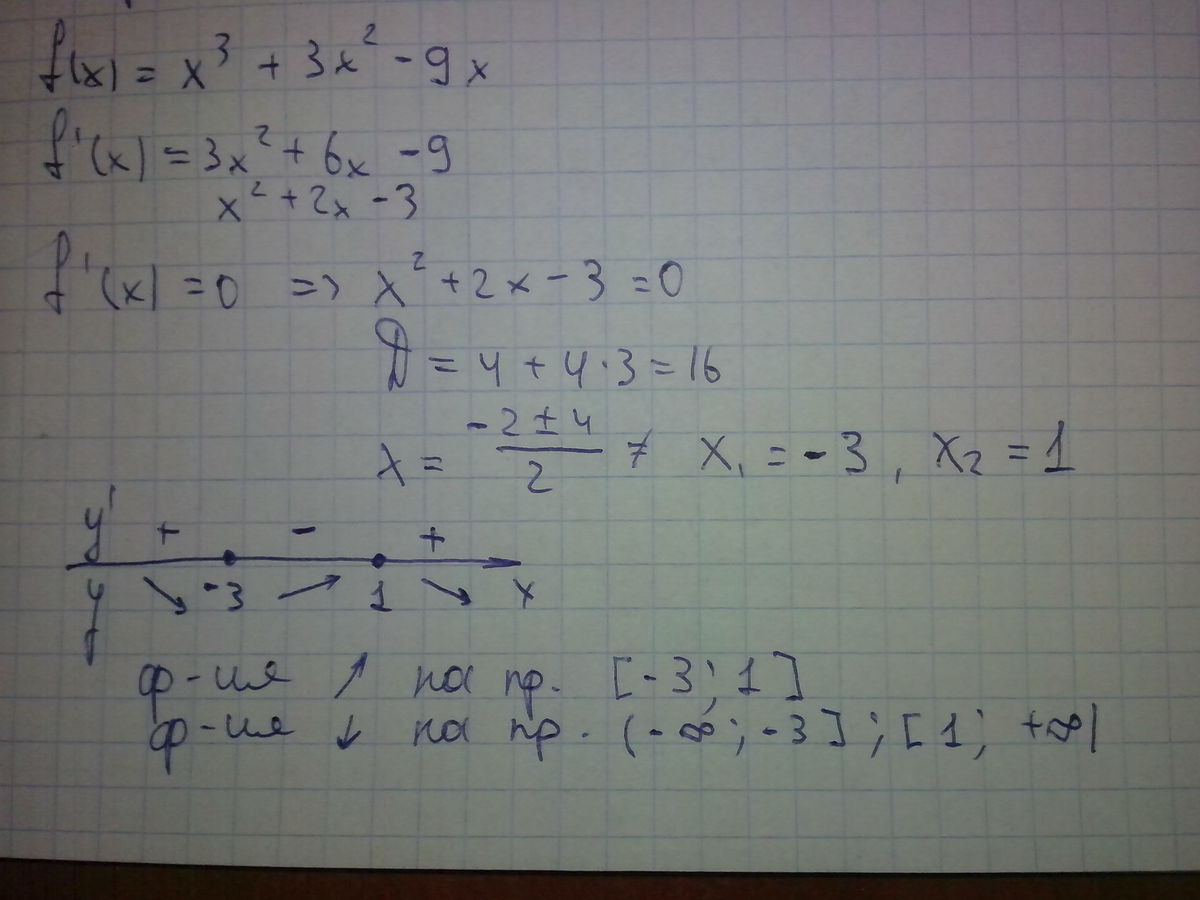 f(x) = x³ + 3x² - 9x
f'(x) = 3x² + 6x - 9
x² + 2x - 3
f'(x) = 0 => x² + 2x - 3 = 0
D = 4 + 4·3 = 16
x = (-2 ± 4)/2 ≠ x₁ = -3, x₂ = 1
y' + - +
y ↘ -3 ↗ 1 ↘ x
ф-ия ↑ на пр. [-3; 1]
ф-ия ↓ на пр. (-∞; -3]; [1; +∞)